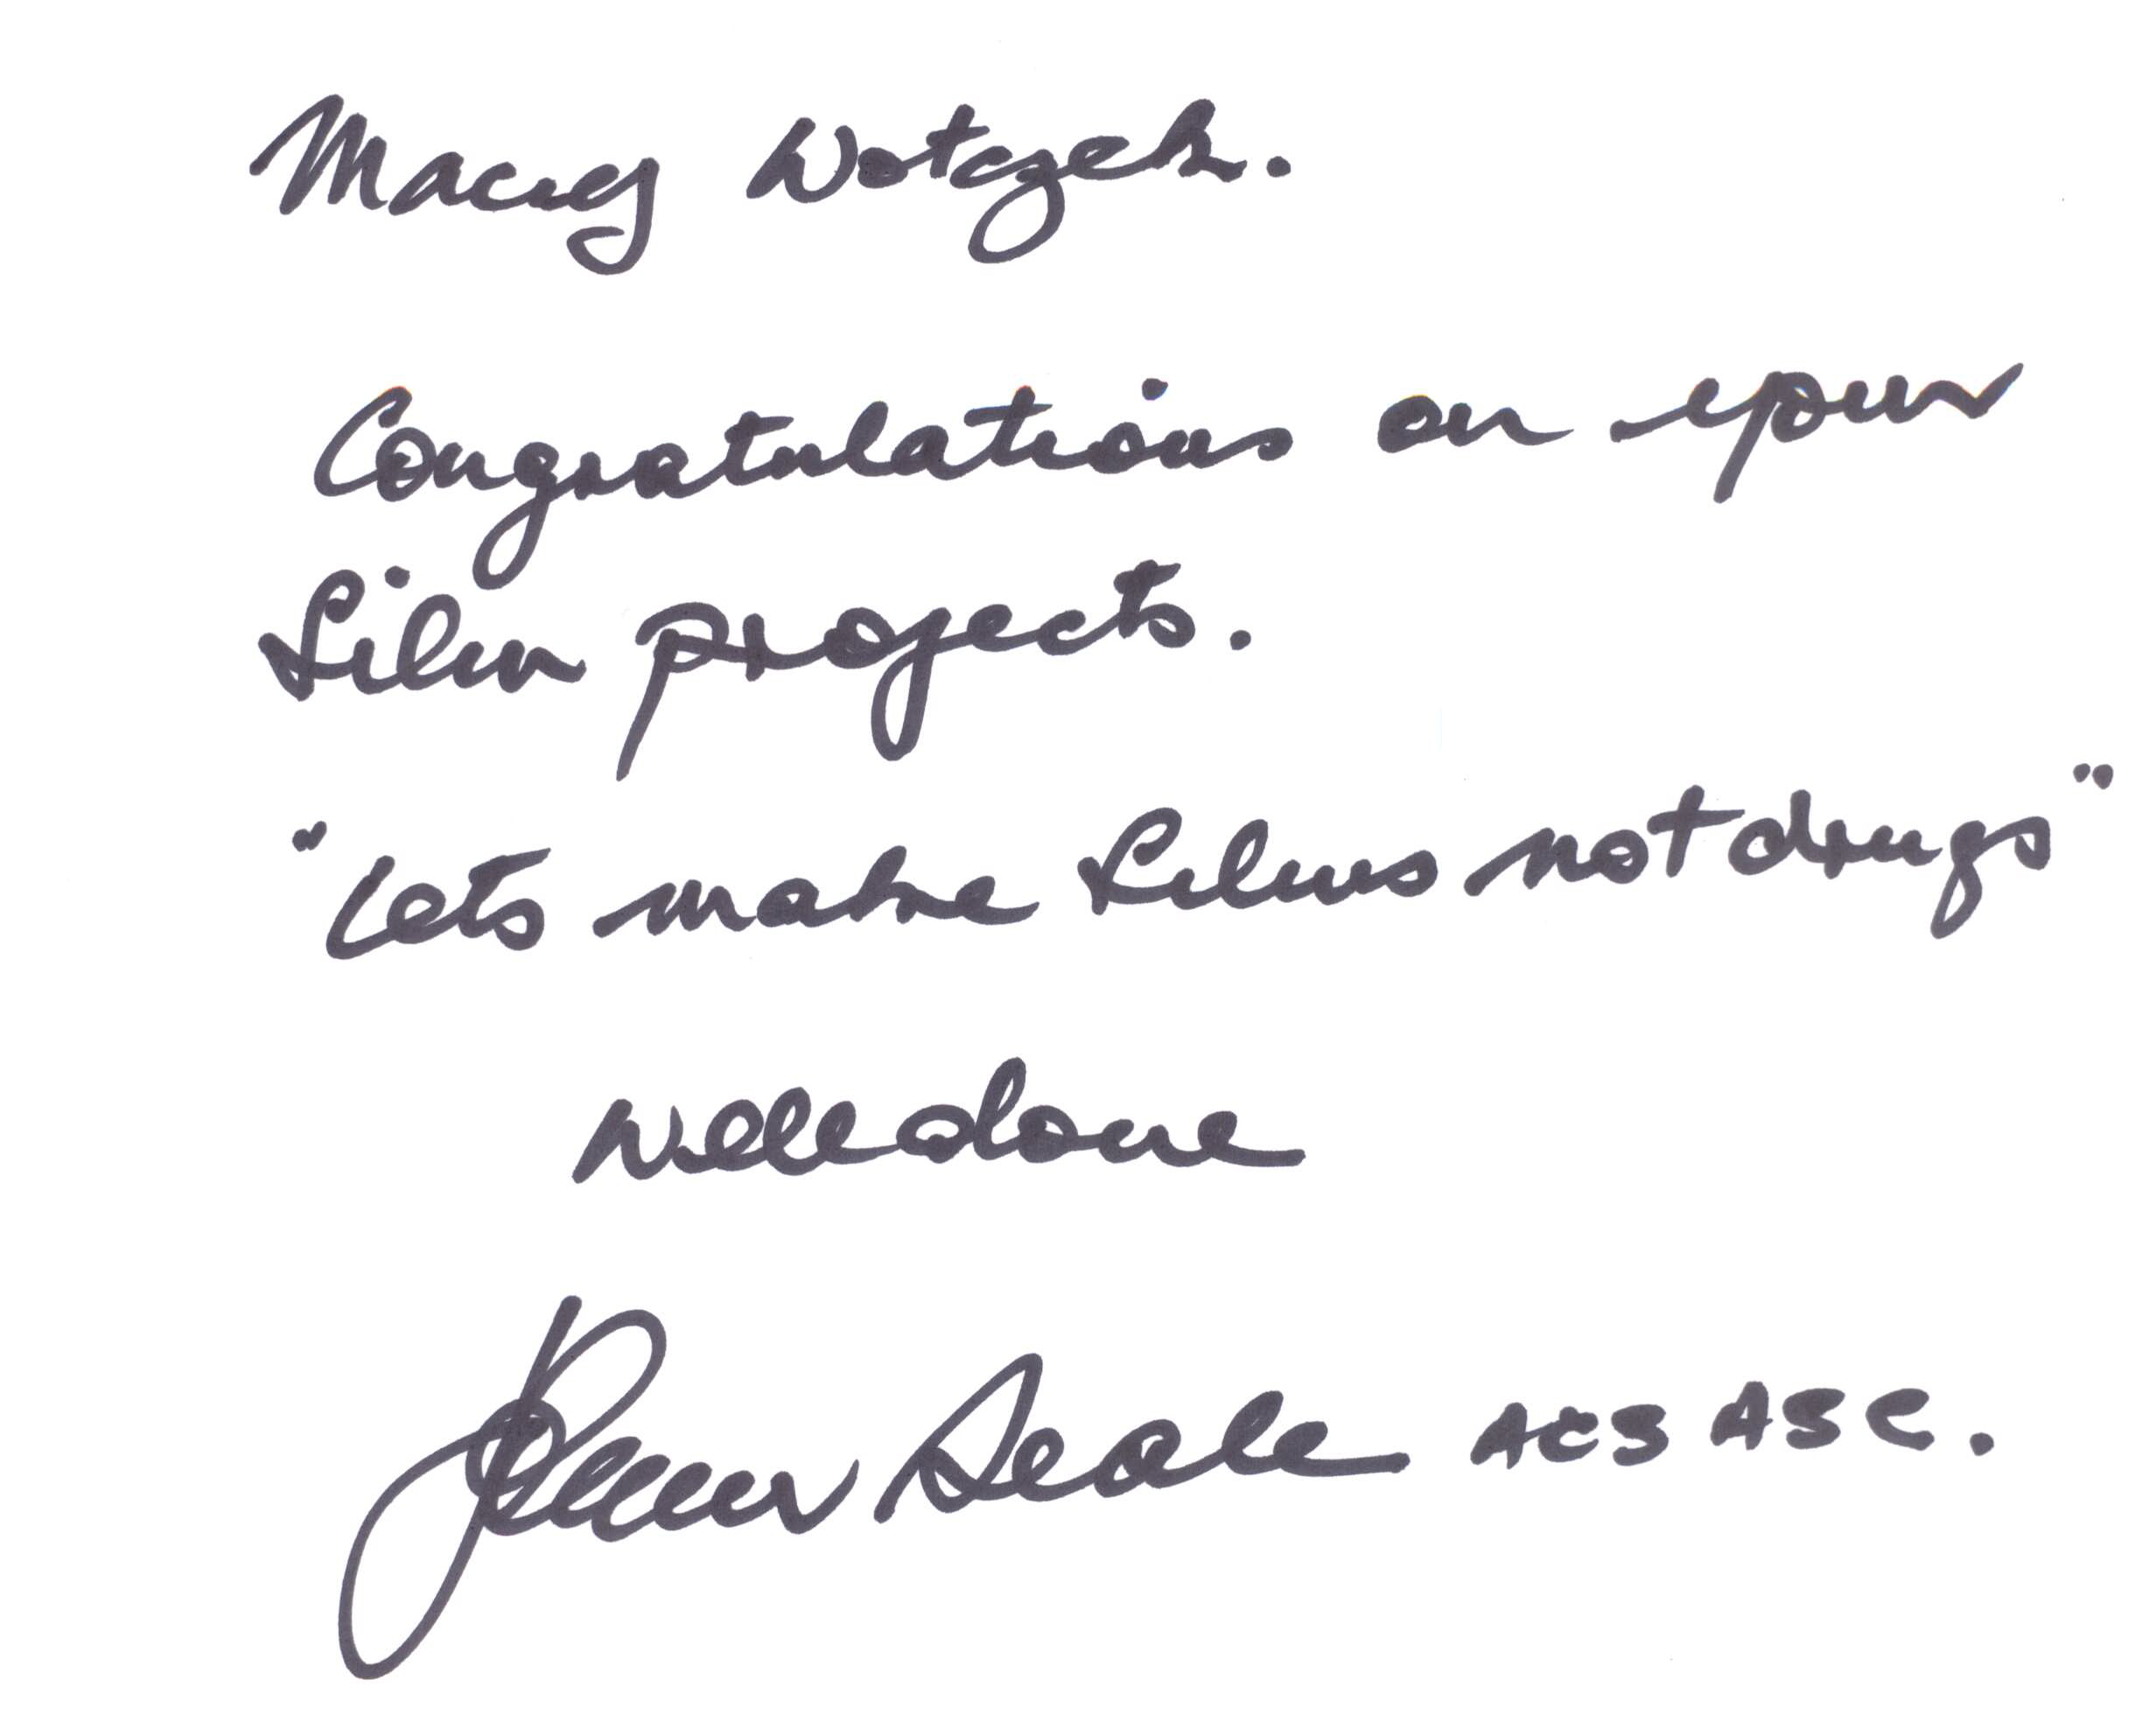 Maciej Wotczek.
Congratulations on your
film projects.
"Lets make films not drugs"
Well done
John Seale ACS ASC.